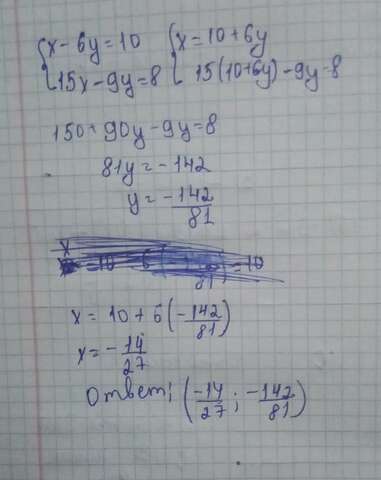 {x-6y=10 {x=10+6y
{15x-9y=8 { 15(10+6y)-9y=8
150+90y-9y=8
81y=-142
y=-142/81
x=10+6(-142/81)
x=-14/27
Ответ: (-14/27; -142/81)